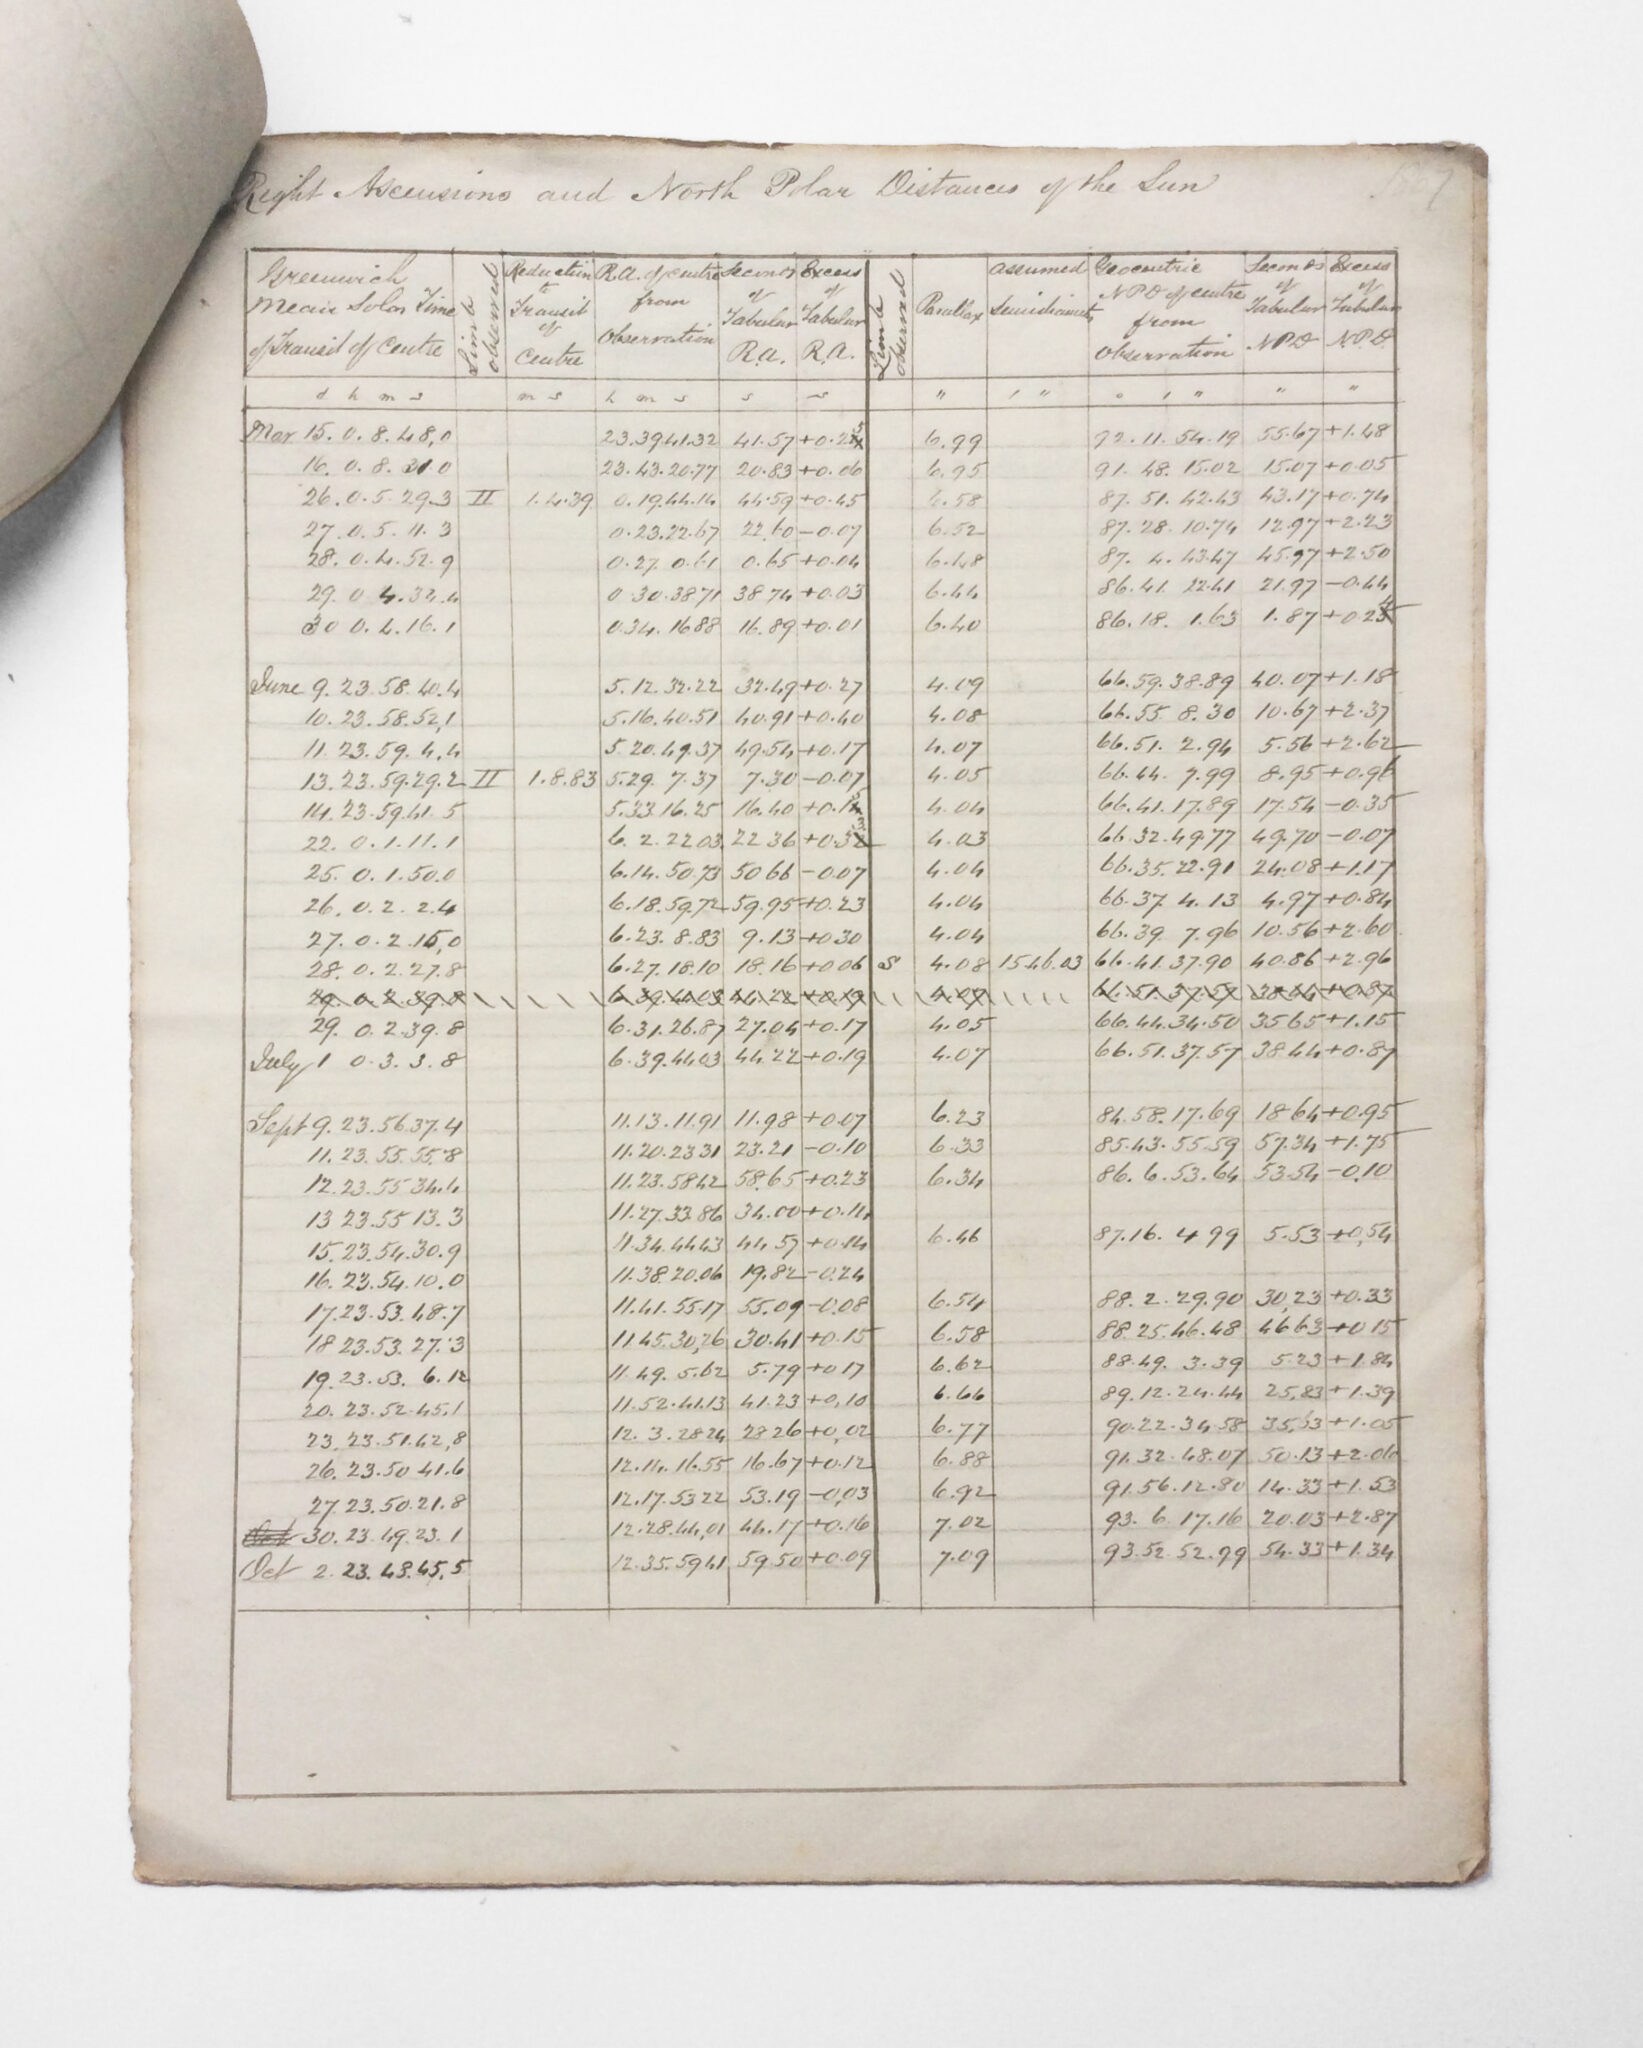 Right Ascensions and North Polar Distances of the Sun
Greenwich Mean Solar Time of Transit of Centre | Limb observed | Reduction to Transit of Centre | R.A. of centre from Observation | Seconds of Tabular R.A. | Excess of Tabular R.A. | Limb observed | Parallax | assumed Semidiameter | Geocentric N.P.D of centre from Observation | Seconds of Tabular N.P.D | Excess of Tabular N.P.D.
d h m s | m s | h m s | s | s | " | ' " | ° ' " | " | "
Mar 15. 0. 8. 48,0 23.39.41.32 41.57 +0.25 6.99 92. 11. 54.19 55.67 +1.48
16. 0. 8. 31 0 23.43.20.77 20.83 +0.06 6.95 91. 48. 15.02 15.07 +0.05
26. 0. 5. 29.3 II 1.4.39 0.19.44.14 44.59 +0.45 6.58 87. 51. 42.43 43.17 +0.74
27. 0. 5. 11. 3 0.23.22.67 22.60 -0.07 6.52 87. 28. 10.74 12.97 +2.23
28. 0. 4. 52. 9 0.27. 0.61 0.65 +0.04 6.48 87. 4. 43.47 45.97 +2.50
29. 0 4. 34.4 0.30.3871 38 74 +0.03 6.44 86.41. 22.41 21.97 -0.44
30 0. 4. 16. 1 0.34. 1688 16.89 +0.01 6.40 86. 18. 1.63 1.87 +0.24
June 9. 23. 58. 40.4 5. 12. 32.22 32.49 +0.27 4.09 66. 59. 38.89 40.07 +1.18
10. 23. 58. 52,1 5.16. 40.51 40.91 +0.40 4.08 66. 55. 8. 30 10.67 +2.37
11. 23. 59. 4.4 5. 20. 49.37 49.54 +0.17 4.07 66. 51. 2.94 5.56 +2.62
13. 23. 59. 29.2 II 1.8.83 5.29. 7.37 7.30 -0.07 4.05 66. 44. 7.99 8.95 +0.96
14. 23. 59.41. 5 5.33.16.25 16.40 +0.15 4.04 66. 41. 17.89 17.54 -0.35
22. 0. 1. 11. 1 6. 2. 22 03 22 36 +0.33 4.03 66. 32. 49.77 49.70 -0.07
25. 0. 1. 50.0 6.14. 50.73 50 66 -0.07 4.04 66. 35. 22.91 24.08 +1.17
26. 0. 2. 2.4 6.18. 59.72 59.95 +0.23 4.04 66. 37. 4. 13 4.97 +0.84
27. 0. 2. 15,0 6.23. 8.83 9.13 +0 30 4.04 66. 39. 7.96 10.56 +2.60
28. 0. 2. 27.8 6.27. 18.10 18.16 +0.06 S 4.08 15.46.03 66. 41. 37.90 40.86 +2.96
29. 0 2. 39.8 6.39.44.03 44.22 +0.19 4.07 66.51.37.57 38.44 +0.87
29. 0. 2. 39. 8 6.31. 26.87 27.04 +0.17 4.05 66.44.34.50 35 65 +1.15
July 1 0. 3. 3. 8 6.39.44.03 44.22 +0.19 4.07 66. 51. 37.57 38 44 +0.87
Sept 9. 23. 56.37. 4 11.13. 11.91 11.98 +0.07 6.23 84. 58. 17. 69 18 64 +0.95
11. 23. 55. 55.8 11.20.23 31 23.21 -0.10 6.33 85.43. 55.59 57.34 +1.75
12. 23. 55 34.4 11.23.58 42 58.65 +0.23 6.34 86. 6. 53. 64 53.54 -0.10
13 23.55 13. 3 11.27.33 86 34.00 +0.14
15. 23.54. 30. 9 11.34.44 43 44 57 +0.14 6.46 87.16. 4 99 5.53 +0,54
16. 23.54. 10. 0 11.38.20.06 19.82 -0.24
17. 23. 53. 48.7 11.41. 55 17 55.09 -0.08 6.54 88. 2. 29.90 30,23 +0.33
18 23. 53. 27. 3 11.45. 30,26 30.41 +0.15 6.58 88. 25. 46.48 46 63 +0 15
19. 23. 53. 6.12 11.49. 5.62 5.79 +0 17 6.62 88.49. 3.39 5.23 +1.84
20. 23. 52. 45,1 11.52. 41.13 41.23 +0,10 6.66 89.12. 24.44 25,83 +1.39
23. 23. 51. 42,8 12. 3. 28 24 28 26 +0,02 6.77 90.22. 34.58 35,63 +1.05
26. 23. 50 41.6 12.14. 16.55 16.67 +0.12 6.88 91. 32. 48.07 50.13 +2.06
27 23. 50. 21. 8 12.17. 53 22 53.19 -0,03 6.92 91. 56. 12.80 14.33 +1.53
Oct 30. 23. 49. 23. 1 12.28.44,01 44.17 +0.16 7.02 93. 6. 17.16 20.03 +2.87
Oct 2. 23. 48.45, 5 12.35.59 41 59.50 +0.09 7.09 93.52. 52.99 54.33 +1.34